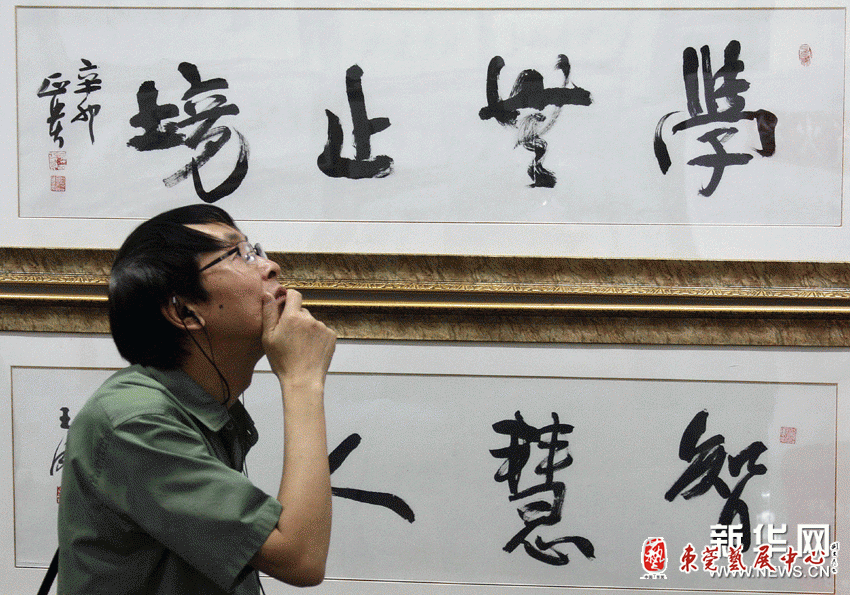 學無止境
辛卯
智慧人
王
新华网
WWW.NEWS.CN
東莞藝展中心